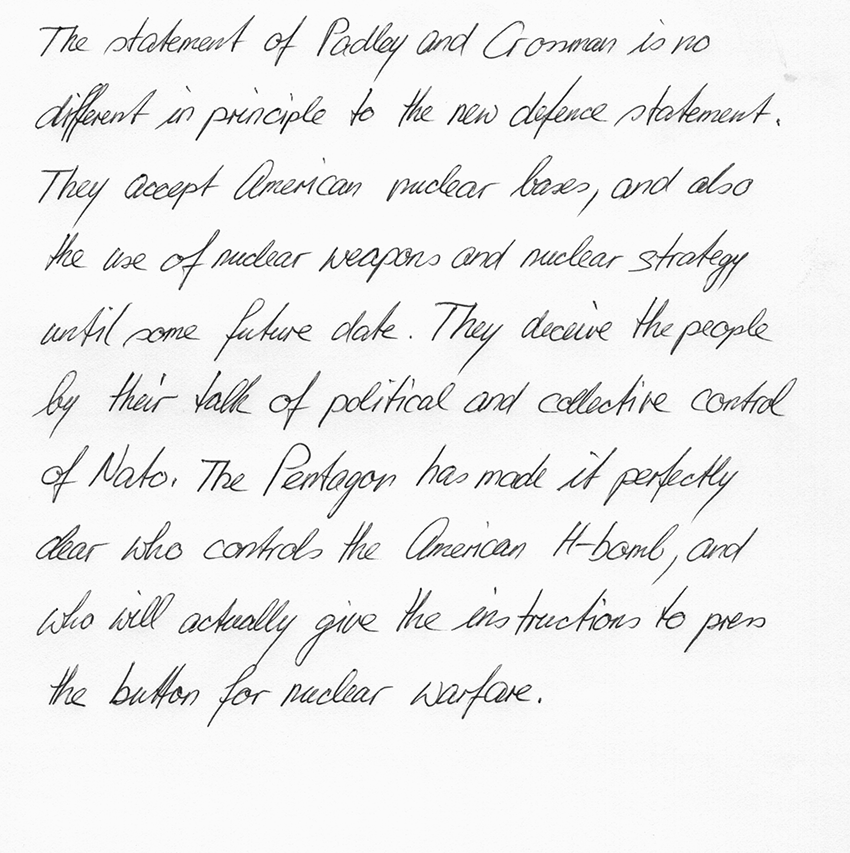 The statement of Padley and Crossman is no
different in principle to the new defence statement.
They accept American nuclear bases, and also
the use of nuclear weapons and nuclear strategy
until some future date. They deceive the people
by their talk of political and collective control
of Nato. The Pentagon has made it perfectly
clear who controls the American H-bomb, and
who will actually give the instructions to press
the button for nuclear warfare.